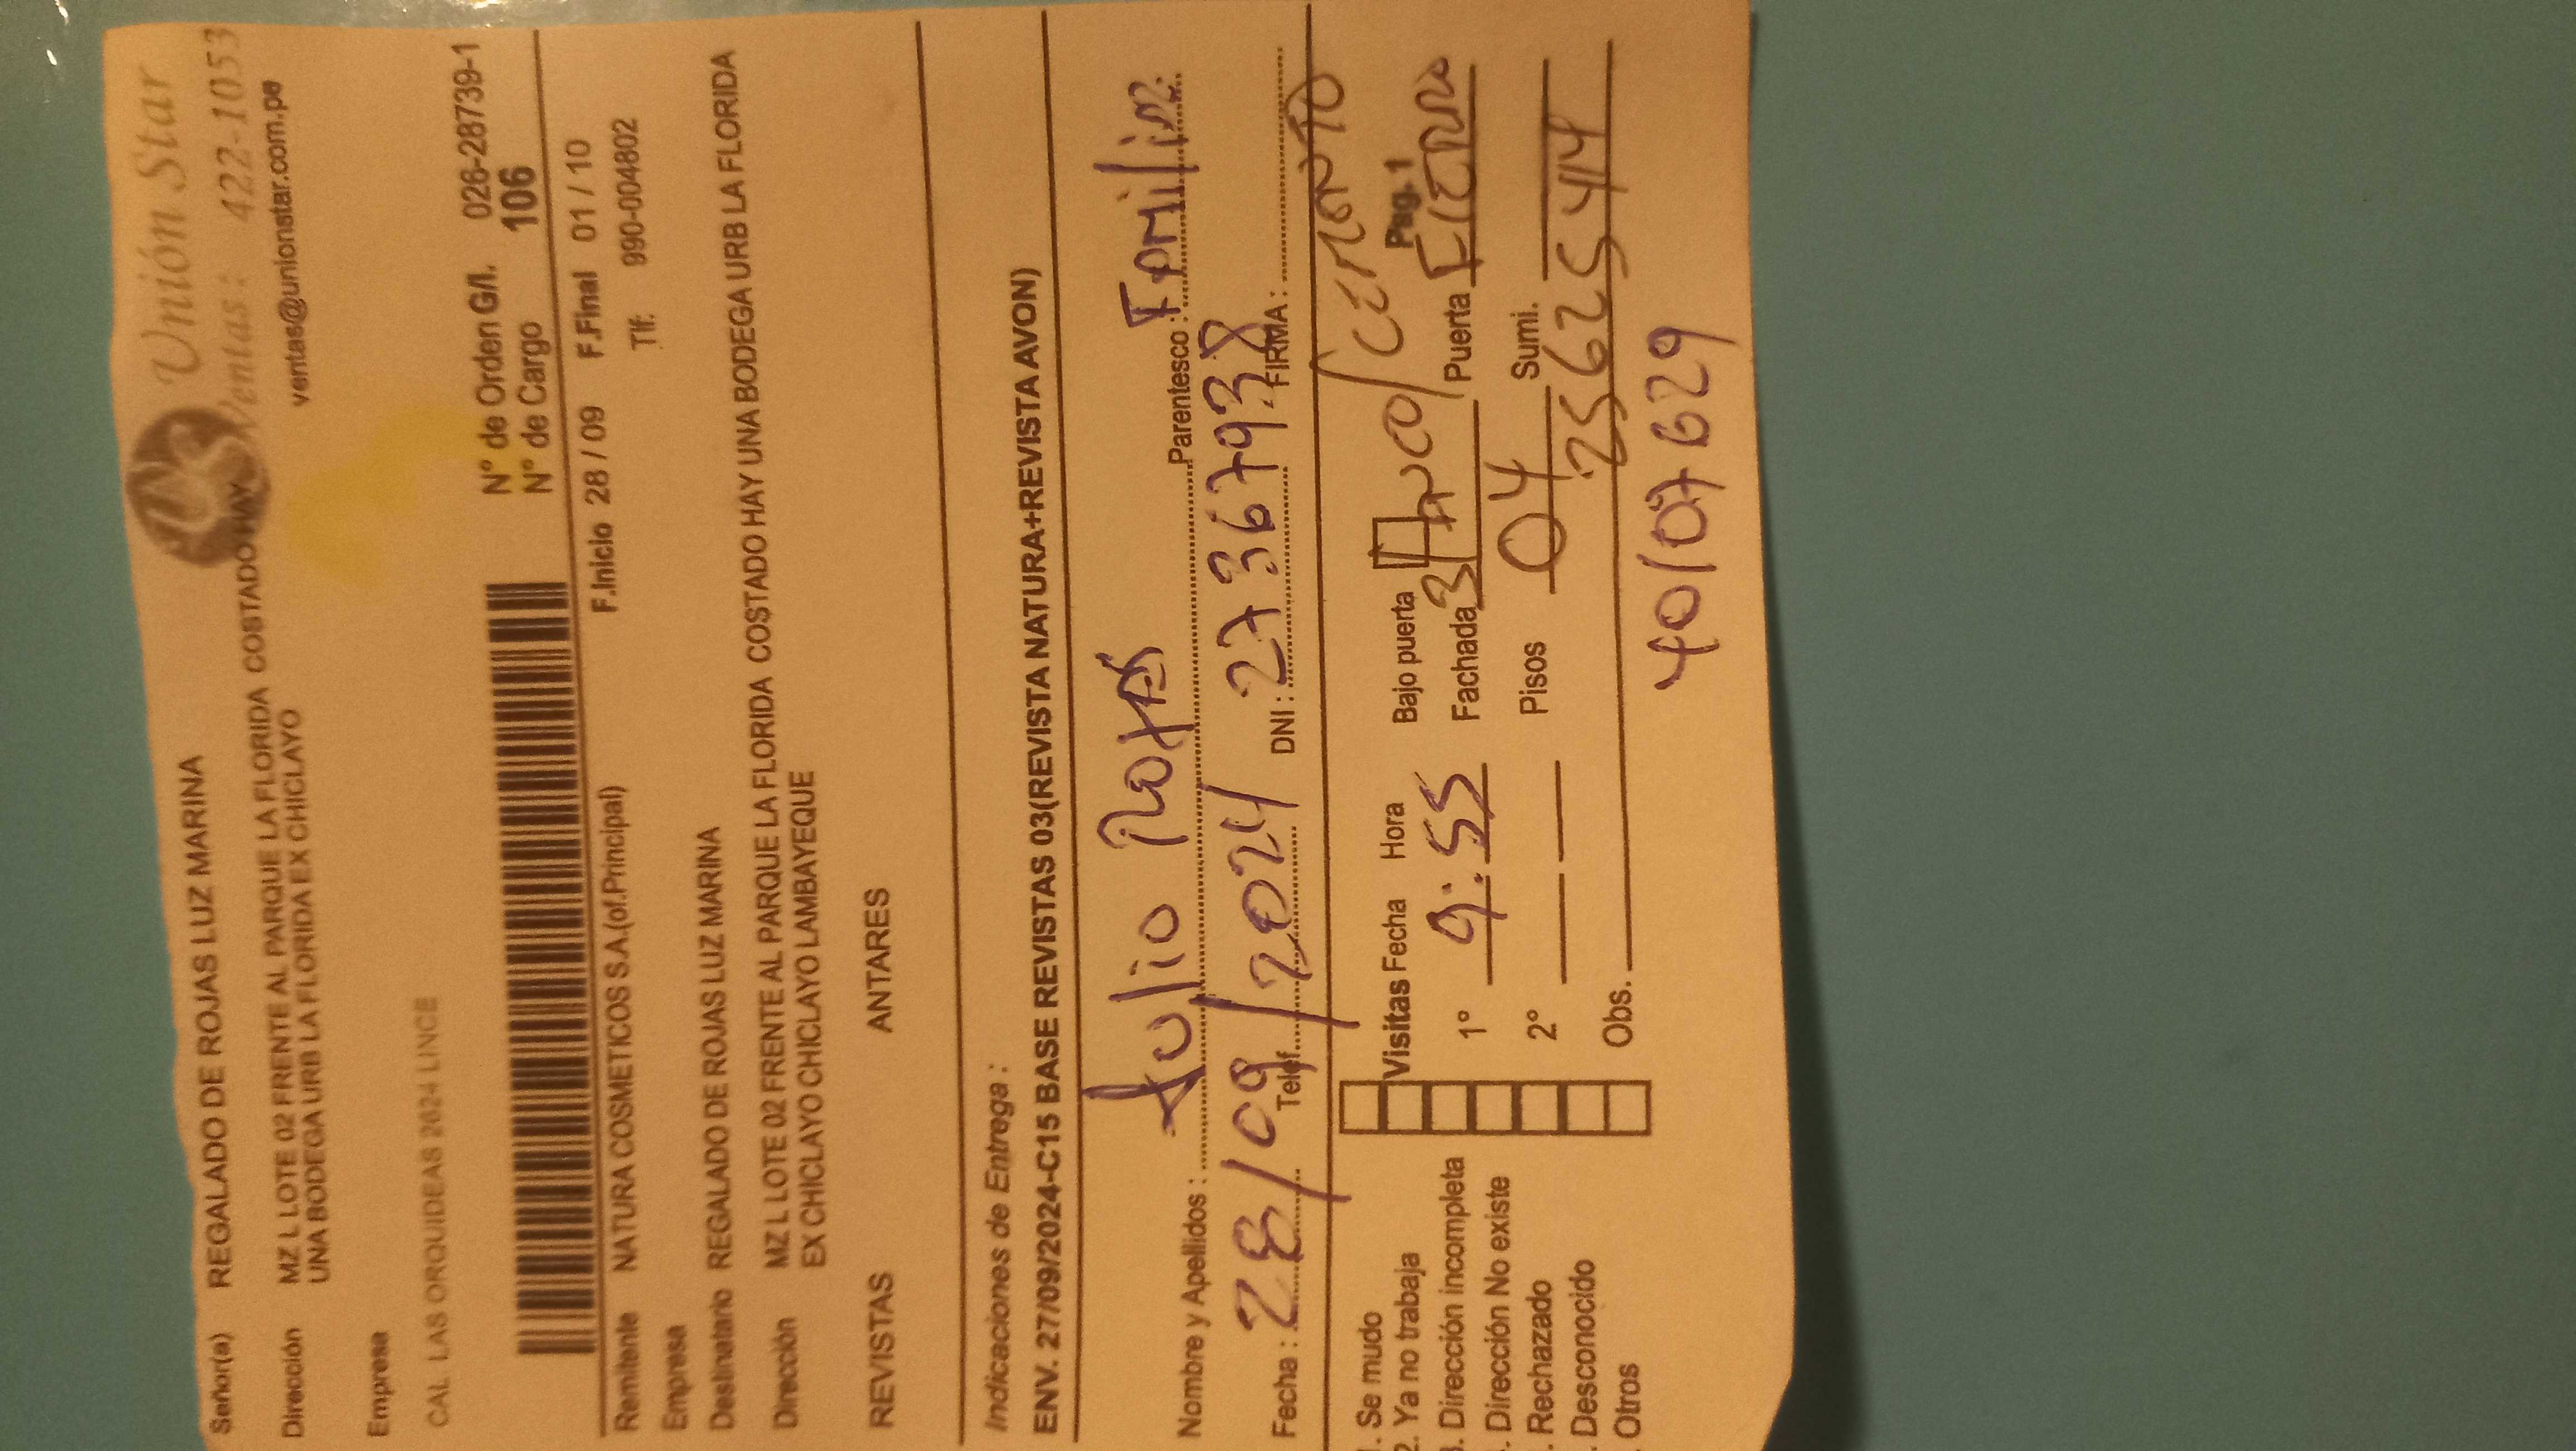 Unión Star
Ventas: 422-1053
ventas@unionstar.com.pe
Señor(a) REGALADO DE ROJAS LUZ MARINA
Dirección MZ L LOTE 02 FRENTE AL PARQUE LA FLORIDA COSTADO HAY
UNA BODEGA URB LA FLORIDA EX CHICLAYO
Empresa
CAL LAS ORQUIDEAS 2624 LINCE
Nº de Orden G/I. 026-28739-1
Nº de Cargo 106
F.Inicio 28 / 09 F.Final 01 / 10
Remitente NATURA COSMETICOS S.A.(of.Principal) Tlf: 990-004802
Empresa
Destinatario REGALADO DE ROJAS LUZ MARINA
Dirección MZ L LOTE 02 FRENTE AL PARQUE LA FLORIDA COSTADO HAY UNA BODEGA URB LA FLORIDA
EX CHICLAYO CHICLAYO LAMBAYEQUE
REVISTAS ANTARES
Indicaciones de Entrega :
ENV. 27/09/2024-C15 BASE REVISTAS 03(REVISTA NATURA+REVISTA AVON)
Nombre y Apellidos : Julio Rojas Parentesco : Familia
Fecha : 28/09/2024 Telef. DNI : 27367938 FIRMA :
1. Se mudo
2. Ya no trabaja
3. Dirección incompleta
. Dirección No existe
. Rechazado
. Desconocido
. Otros
Visitas Fecha Hora Bajo puerta Pag. 1
1º 9:55 Fachada Puerta Fierro
2º Pisos 04 Sumi.
Obs. 25625414
40107629